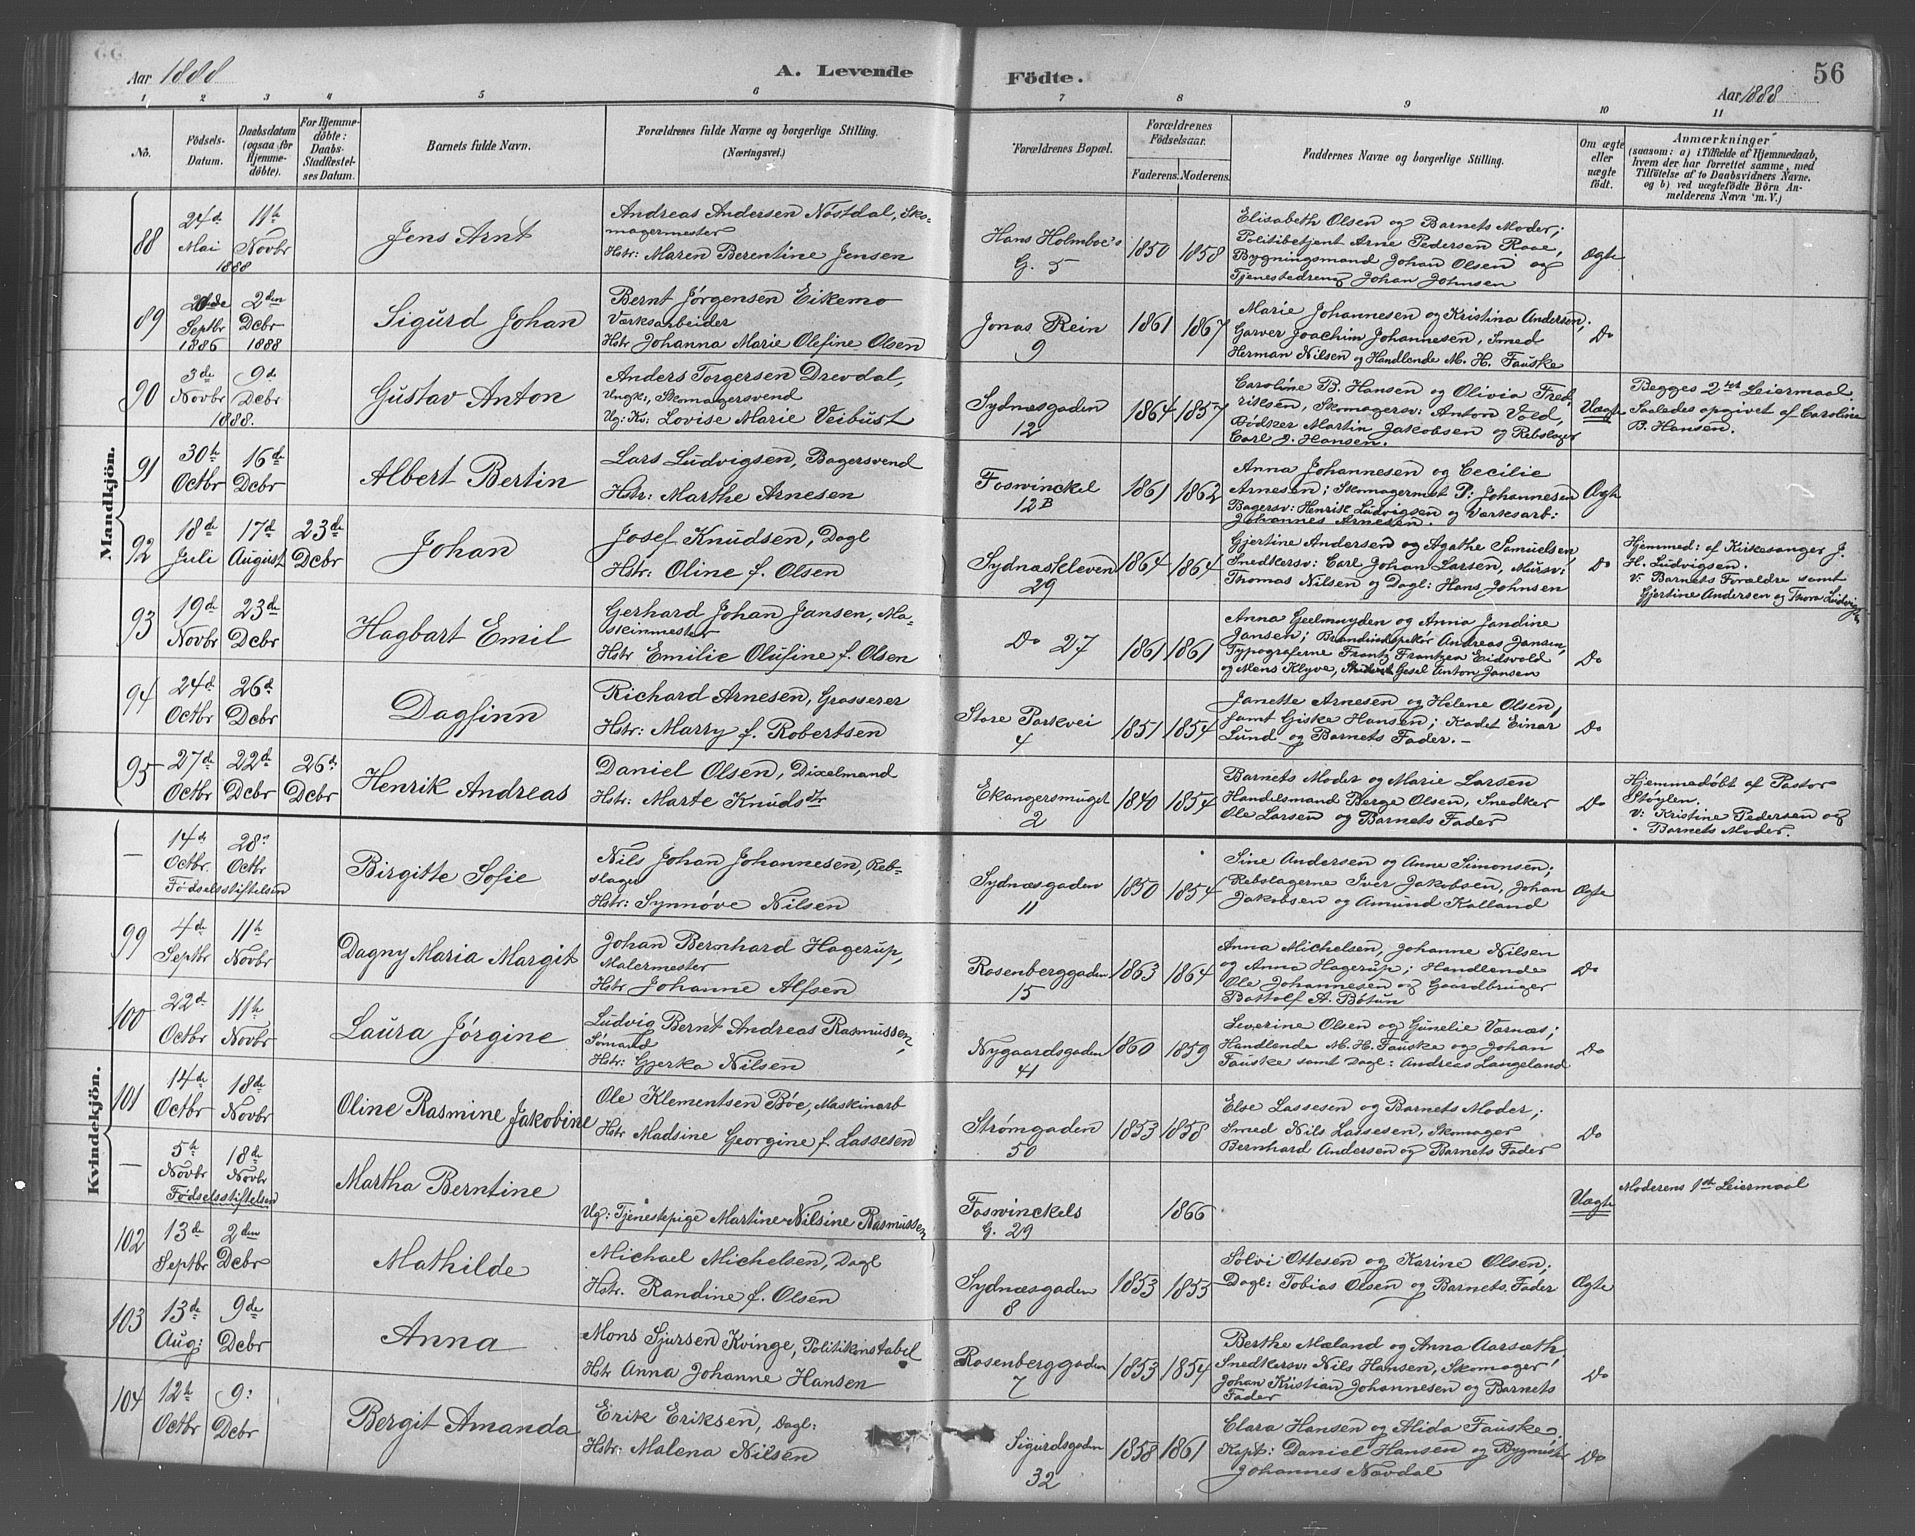 Aar 1888
A. Levende
Födte.
56
Aar 1888
1 2 3 4 5 6 7 8 9 10 11
No.
Födsels-Datum.
Daabsdatum (ogsaa for Hjemme-døbte).
For Hjemme-døbte: Daabs-Stadfæstel-ses Datum.
Barnets fulde Navn.
Forældrenes fulde Navne og borgerlige Stilling. (Næringsvei.)
Forældrenes Bopæl.
Forældrenes Födselsaar.
Faderens. Moderens.
Faddernes Navne og borgerlige Stilling.
Om ægte eller uægte födt.
Anmærkninger
(saasom: a) i Tilfælde af Hjemmedaab, hvem der har forrettet samme, med Tilföielse af to Daabsvidners Navne. og b) ved uægtefödte Börn An-melderens Navn m. V.)
Mandkjön.
88
24d Mai 11th Novbr 1888
Jens Arnt
Andreas Andersen Nøstdal, Sko-
magermester
Hstr: Maren Berentine Jensen
Hans Holmboe's
G. 5
1850 1858
Elisabeth Olsen og Barnets Moder;
Politibetjent Arne Pedersen Raae,
Bygningsmand Johan Olsen og
Tjenestedreng Johan Johnsen
Ægte
89
Septbr 1886 2den Dcbr 1888
Sigurd Johan
Bernt Jørgensen Eikemo
Værksarbeider
Hstr Johanna Marie Olefine Olsen
Jonas Rein
9
1861 1867
Marie Johannesen og Kristina Andersen;
Garver Joachim Johannesen, Smed
Herman Nilsen og Handlende M. H. Fauske
Do
90
3de Novbr 9de Dcbr 1888.
Gustav Anton
Anders Torgersen Drevdal,
Ungk:, Skomagersvend
Ug: Kv: Lovise Marie Veibust
Sydnæsgaden
12
1864 1857
Caroline B. Hansen og Olivia Fred-
riksen, Skomagersv: Anton Vold,
Bødker Martin Jakobsen og Rebslager
Carl J. Hansen.
Uægte
Begges 2det Leiermaal.
Saaledes opgivet af Caroline
B. Hansen.
91
30th Octbr 16de Dcbr
Albert Bertin
Lars Ludvigsen, Bagersvend
Hstr: Marthe Arnesen
Foswinckel
12B
1861 1862
Anna Johannesen og Cecilie
Arnesen; Skomagermst P: Johannesen
Bagersv: Henrik Ludvigsen og Værksarb:
Johannes Arnesen.
Ægte
92
18de Juli 17de August 23de Dcbr
Johan
Josef Knudsen, Dagl
Hstr: Oline f. Olsen
Sydnæskleven
29
1864 1864
Gjertine Andersen og Agathe Samuelsen,
Snedkersv: Carl Johan Larsen, Mursv:
Thomas Nilsen og Dagl: Hans Johnsen
Do
Hjemmed: af Kirkesanger J.
H. Ludvigsen.
v. Barnets Forældre samt
Gjertine Andersen og Thora Ludvigs
93
19de Novbr 23de Dcbr
Hagbart Emil
Gerhard Johan Jansen, Ma-
skinmester
Hstr Emilie Olufine f. Olsen
Do 27
1861 1861
Anna Geelmuyden og Anna Jandine
Jansen; Brandinspektør Andreas Jansen,
Typograferne Frantz Frantzen Eidsvold
og Mons Klyve, Gesel Anton Jansen
Do
94
24de Octbr 26d Dcbr
Dagfinn
Richard Arnesen, Grosserer
Hstr: Marry f. Robertsen
Store Parkvei
4
1851 1854
Janette Arnesen og Helene Olsen,
samt Giske Hansen; Kadet Einar
Lund og Barnets Fader.-
Do
95
27de Octbr 22de Dcbr 26d Dcbr
Henrik Andreas
Daniel Olsen, Dixelmand
Hstr: Marte Knudsdtr
Ekangersmuget
2
1840 1854
Barnets Moder og Marie Larsen
Handelsmand Berge Olsen, Snedker
Ole Larsen og Barnets Fader
Do
Hjemmedøbt af Pastor
Støylen.
v: Kristine Pedersen og
Barnets Moder.
Kvindekjön.
—
14de Octbr. 28d Octbr
Fødselsstiftelsen
Birgitte Sofie
Nils Johan Johannesen, Reb-
slager
Hstr: Synnøve Nilsen
Sydnæsgaden
11
1850 1854
Sine Andersen og Anne Simonsen;
Rebslagerne Iver Jakobsen, Johan
Jakobsen og Amund Kalland
Ægte
99
4de Septbr 11th Novbr
Dagny Maria Margit
Johan Bernhard Hagerup,
Malermester
Hstr Johanne Alfsen
Rosenberggaden
15
1863 1864
Anna Michelsen, Johanne Nilsen
og Anna Hagerup; Handlende
Ole Johannesen og Gaardbruger
Bottolf A. Bøtun
Do
100
22de Octbr 11th Novbr
Laura Jørgine
Ludvig Bernt Andreas Rasmussen,
Sømand
Hstr: Gjerka Nilsen
Nygaardsgaden
41
1860 1859
Severine Olsen og Gunelie Varnæs;
Handlende M. H. Fauske og Johan
Fauske samt Dagl: Andreas Langeland
Do
101
14de Octbr 18de Novbr
Oline Rasmine Jakobine
Ole Klementsen Bøe, Maskinarb
Hstr Madsine Georgine f. Lassesen
Strømgaden
50
1853 1858
Else Lassesen og Barnets Moder;
Smed Nils Lassesen, Skomager
Bernhard Andersen og Barnets Fader
Do
—
5th Novbr 18de Novbr
Fødselsstiftelsen
Martha Berntine
Ug: Tjenestepige Martine Nilsine Rasmussen
Foswinckels
G. 29
1866
Uægte
Moderens 1ste Leiermaal
102
13de Septbr 2den Dcbr
Mathilde
Michael Michelsen, Dagl
Hstr. Randine f. Olsen
Sydnæsgaden
8
1853 1855
Solvi Ottesen og Karine Olsen;
Dagl: Tobias Olsen og Barnets Fader
Ægte
103
13de Aug: 9de Dcbr
Anna
Mons Sjursen Kvinge, Politikonstabel
Hstr Anna Johanne Hansen
Rosenberggaden
7
1853 1854
Berthe Mæland og Anna Aarsæth,
Snedkersv: Nils Hansen, Skomager
Johan Kristian Johannesen og Barnets
Fader
Do
104
12th Octbr 9: Dcbr
Bergit Amanda
Erik Eriksen, Dagl:
Hstr: Malena Nilsen
Sigurdsgaden
32
1858 1861
Clara Hansen og Alida Fauske;
Kapt: Daniel Hansen og Bygmster
Johannes Navdal
Do